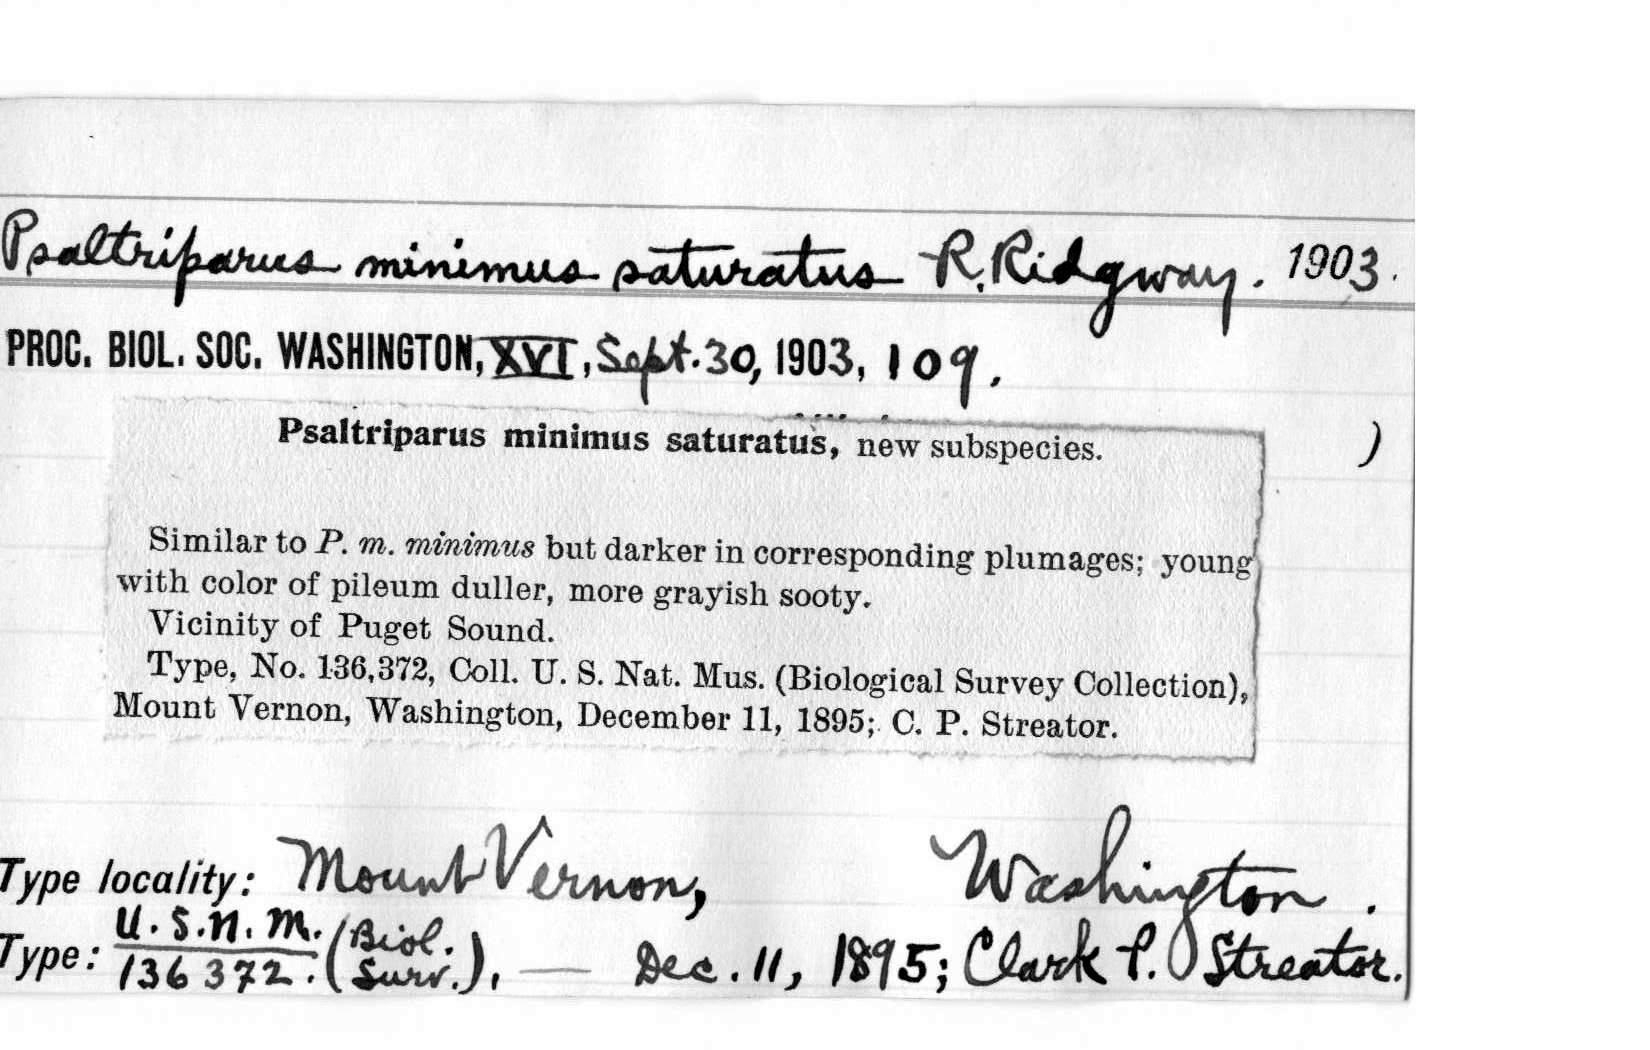 Psaltriparus minimus saturatus R. Ridgway. 1903.
PROC. BIOL. SOC. WASHINGTON, XVI, Sept. 30, 1903, 109.
)
Psaltriparus minimus saturatus, new subspecies.
Similar to P. m. minimus but darker in corresponding plumages; young
with color of pileum duller, more grayish sooty.
Vicinity of Puget Sound.
Type, No. 136,372, Coll. U. S. Nat. Mus. (Biological Survey Collection),
Mount Vernon, Washington, December 11, 1895; C. P. Streator.
Type locality: Mount Vernon, Washington.
Type: U.S.N.M. 136372. (Biol. Surv.). — Dec. 11, 1895; Clark P. Streator.